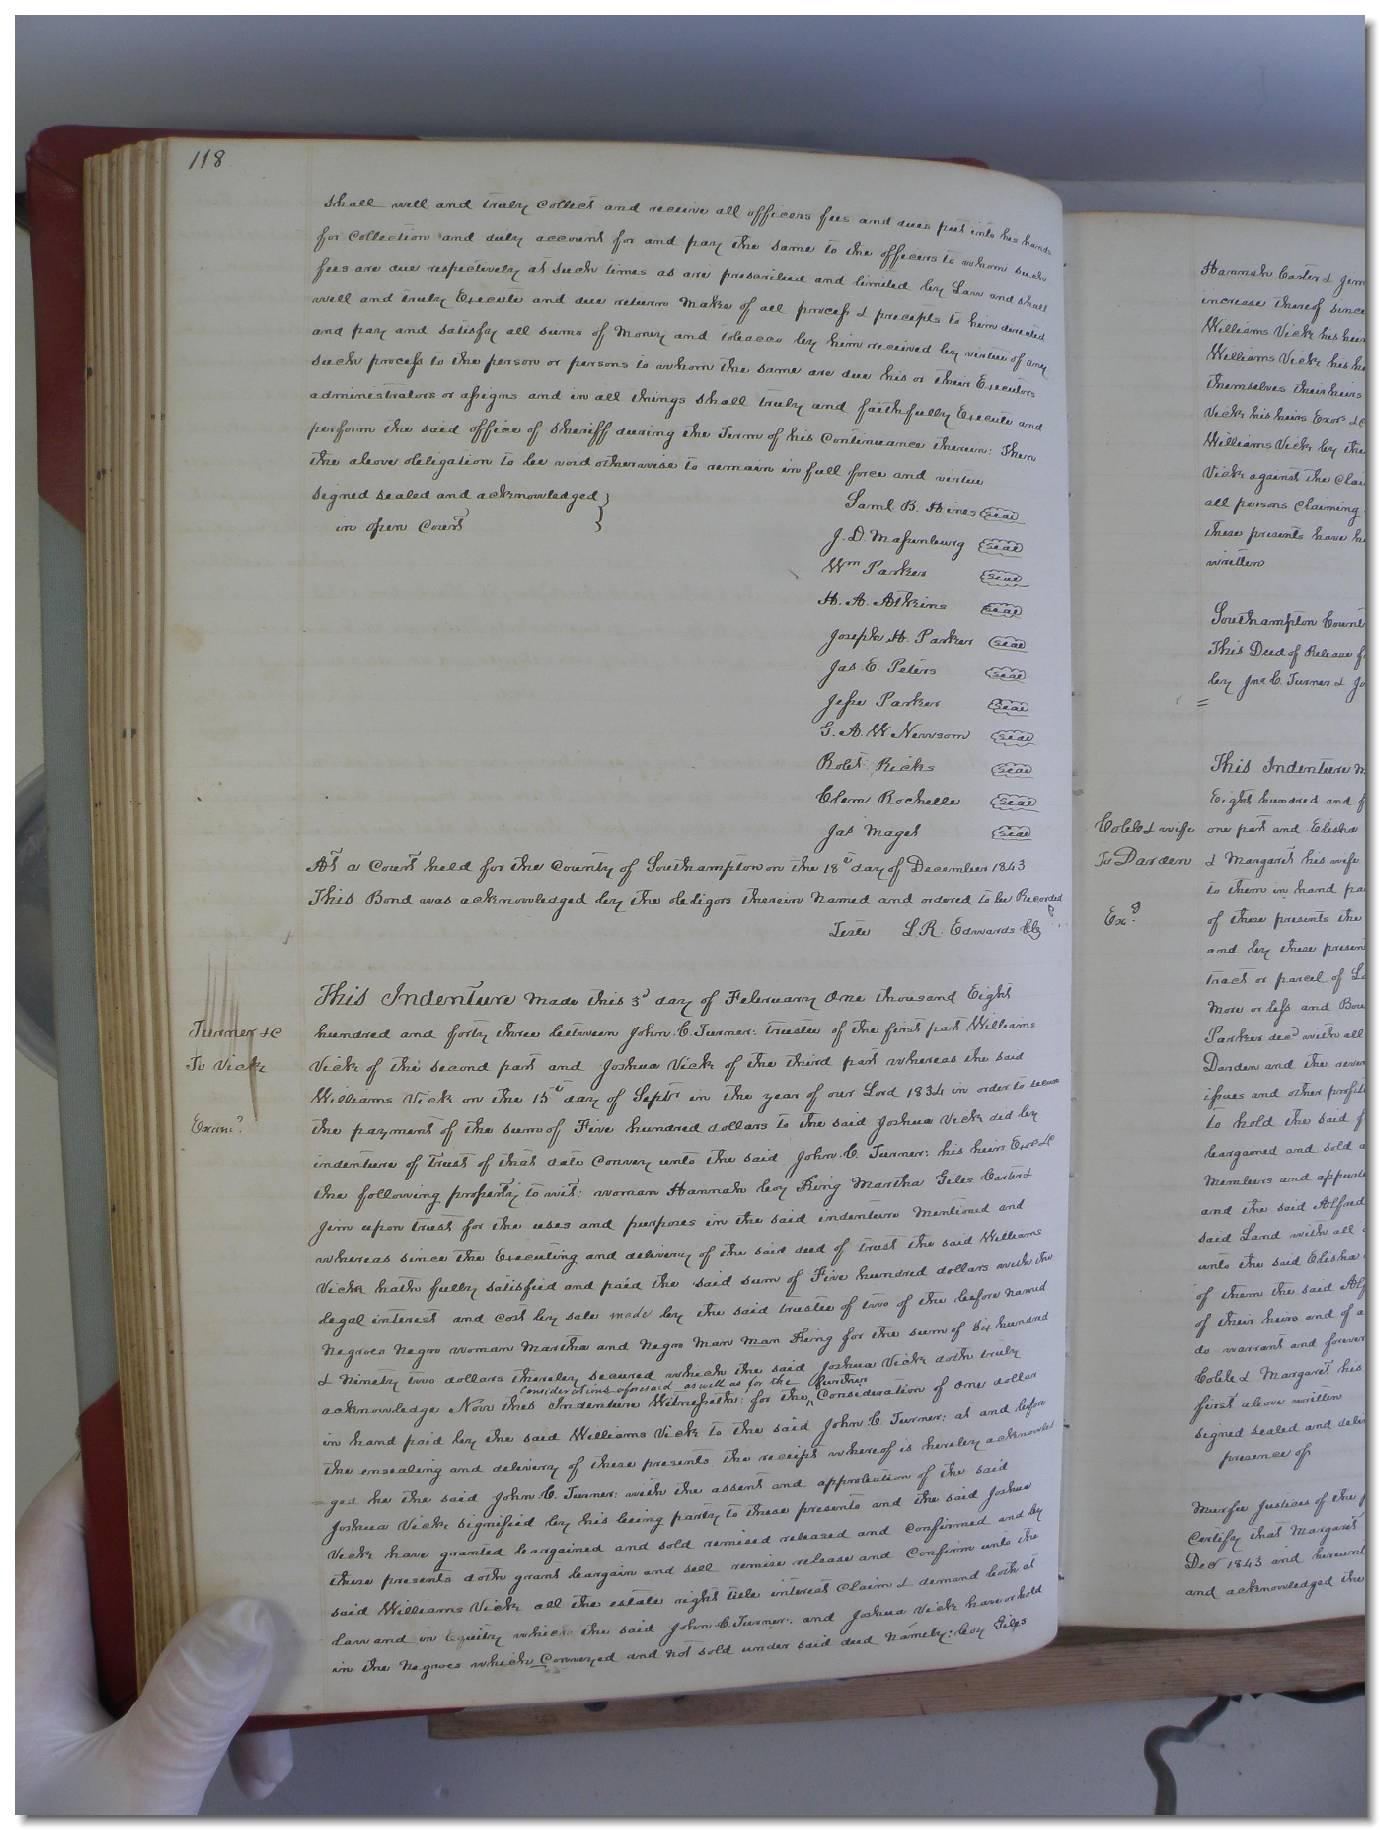 118
shall well and truly collect and receive all officers fees and dues put into his hands
for collection and duly account for and pay the same to the officers to whom such
fees are due respectively at such times as are prescribed and limited by Law and shall
well and truly Execute and due return make of all process & precepts to him directed
and pay and satisfy all sums of money and tobacco by him received by virtue of any
such process to the person or persons to whom the same are due his or their Executors
administrators or assigns and in all things shall truly and faithfully Execute and
perform the said office of Sheriff during the Term of his Continuance therein: Then
the above obligation to be void otherwise to remain in full force and virtue
signed sealed and acknowledged }
in open Court }
Saml B. Hines seal
J. D. Massenburg seal
Wm Parker seal
H. A. Atkins seal
Joseph H. Parker seal
Jas E. Peters seal
Jesse Parker seal
G. A. W Newsom seal
Robt Ricks seal
Clem Rochelle seal
Jas Maget seal
At a Court held for the County of Southampton on the 18th day of December 1843
This Bond was acknowledged by the obligors therein named and ordered to be Recorded
Teste L. R. Edwards Clk
Turner &c
To Vick
Exam.d
This Indenture made this 3d day of February One thousand Eight
hundred and forty three between John C. Turner: trustee of the first part Williams
Vick of the second part and Joshua Vick of the third part whereas the said
Williams Vick on the 15th day of Septr in the year of our Lord 1834 in order to secure
the payment of the sum of Five hundred dollars to the said Joshua Vick did by
indenture of Trust of that date Convey unto the said John C. Turner: his heirs Exrs &c
the following property to wit: woman Hannah boy King Martha Giles Carter &
Jim upon trust for the uses and purposes in the said indenture mentioned and
whereas since the Executing and delivery of the said deed of trust the said Williams
Vick hath fully satisfied and paid the said sum of Five hundred dollars with the
legal interest and cost by sale made by the said trustee of two of the before named
Negroes Negro woman Martha and Negro Man man King for the sum of six hundred
& Ninety two dollars thereby secured which the said Joshua Vick doth truly
Considerations aforesaid as well as for the further
acknowledge Now this Indenture Witnesseth: for the ^ Consideration of one dollar
in hand paid by the said Williams Vick to the said John C. Turner: at and before
the ensealing and delivery of these presents the receipt whereof is hereby acknowled
=ged he the said John C. Turner: with the assent and approbation of the said
Joshua Vick signified by his being party to these presents and the said Joshua
Vick have granted bargained and sold remised released and confirmed and by
these presents doth grant bargain and sell remise release and Confirm unto the
said Williams Vick all the estate right title interest claim & demand both at
Law and in Equity which the said John C. Turner: and Joshua Vick have or hold
in the Negroes which Conveyed and not sold under said deed Namely: boy Giles
Hannah Carter & Jim
increase thereof since
Williams Vick his heirs
Williams Vick his
themselves their heirs
Vick his heirs Exors &c
Williams Vick by the
Vick against the Clai
all persons claiming
these presents have
written
Southampton Count
This Deed of Release
by Jno C. Turner &
=
Cobb & wife
To Darden
Exd
This Indenture
Eight hundred and f
one part and Elisha
& Margaret his wife
to them in hand pa
of these presents the
and by these presen
tract or parcel of La
More or less and Bou
Parker decd with all
Darden and the
issues and other profits
to hold the said
bargained and sold a
Members and appurte
and the said Alfred
said Land with all
unto the said Elisha
of them the said Alf
of their heirs and of a
do warrant and forever
Cobb & Margaret his
first above written
signed sealed and deli
presence of
Murfee Justices of the
Certify that Margaret
Decr 1843 and hereunt
and acknowledged the